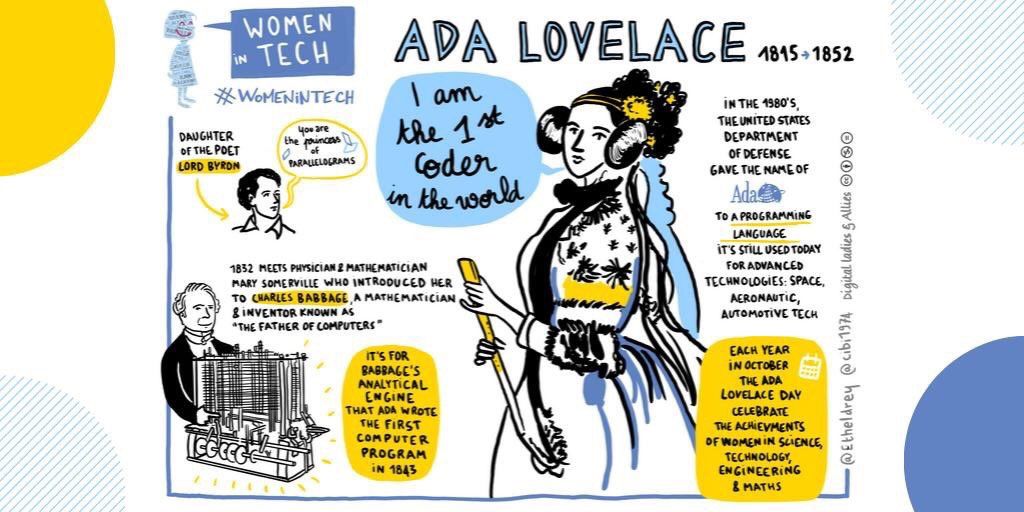 WOMEN
in TECH
#WOMENiNTECH
ADA LOVELACE 1815→1852
DAUGHTER
OF THE POET
LORD BYRON
You are
the princess
of
PARALLELOGRAMS
I am
the 1st
Coder
in the world
1832 MEETS PHYSICIAN & MATHEMATICIAN
MARY SOMERVILLE WHO INTRODUCED HER
TO CHARLES BABBAGE, A MATHEMATICIAN
& INVENTOR KNOWN AS
"THE FATHER OF COMPUTERS"
IT'S FOR
BABBAGE'S
ANALYTICAL
ENGINE
THAT ADA WROTE
THE FIRST
COMPUTER
PROGRAM
IN 1843
IN THE 1980'S,
THE UNITED STATES
DEPARTMENT
OF DEFENSE
GAVE THE NAME OF
Ada
TO A PROGRAMMING
LANGUAGE
IT'S STILL USED TODAY
FOR ADVANCED
TECHNOLOGIES: SPACE,
AERONAUTIC,
AUTOMOTIVE TECH
EACH YEAR
IN OCTOBER
THE ADA
LOVELACE DAY
CELEBRATE
THE ACHIEVMENTS
OF WOMEN IN SCIENCE,
TECHNOLOGY,
ENGINEERING
& MATHS
@Etheldrey @cibi1974 Digital Ladies & Allies